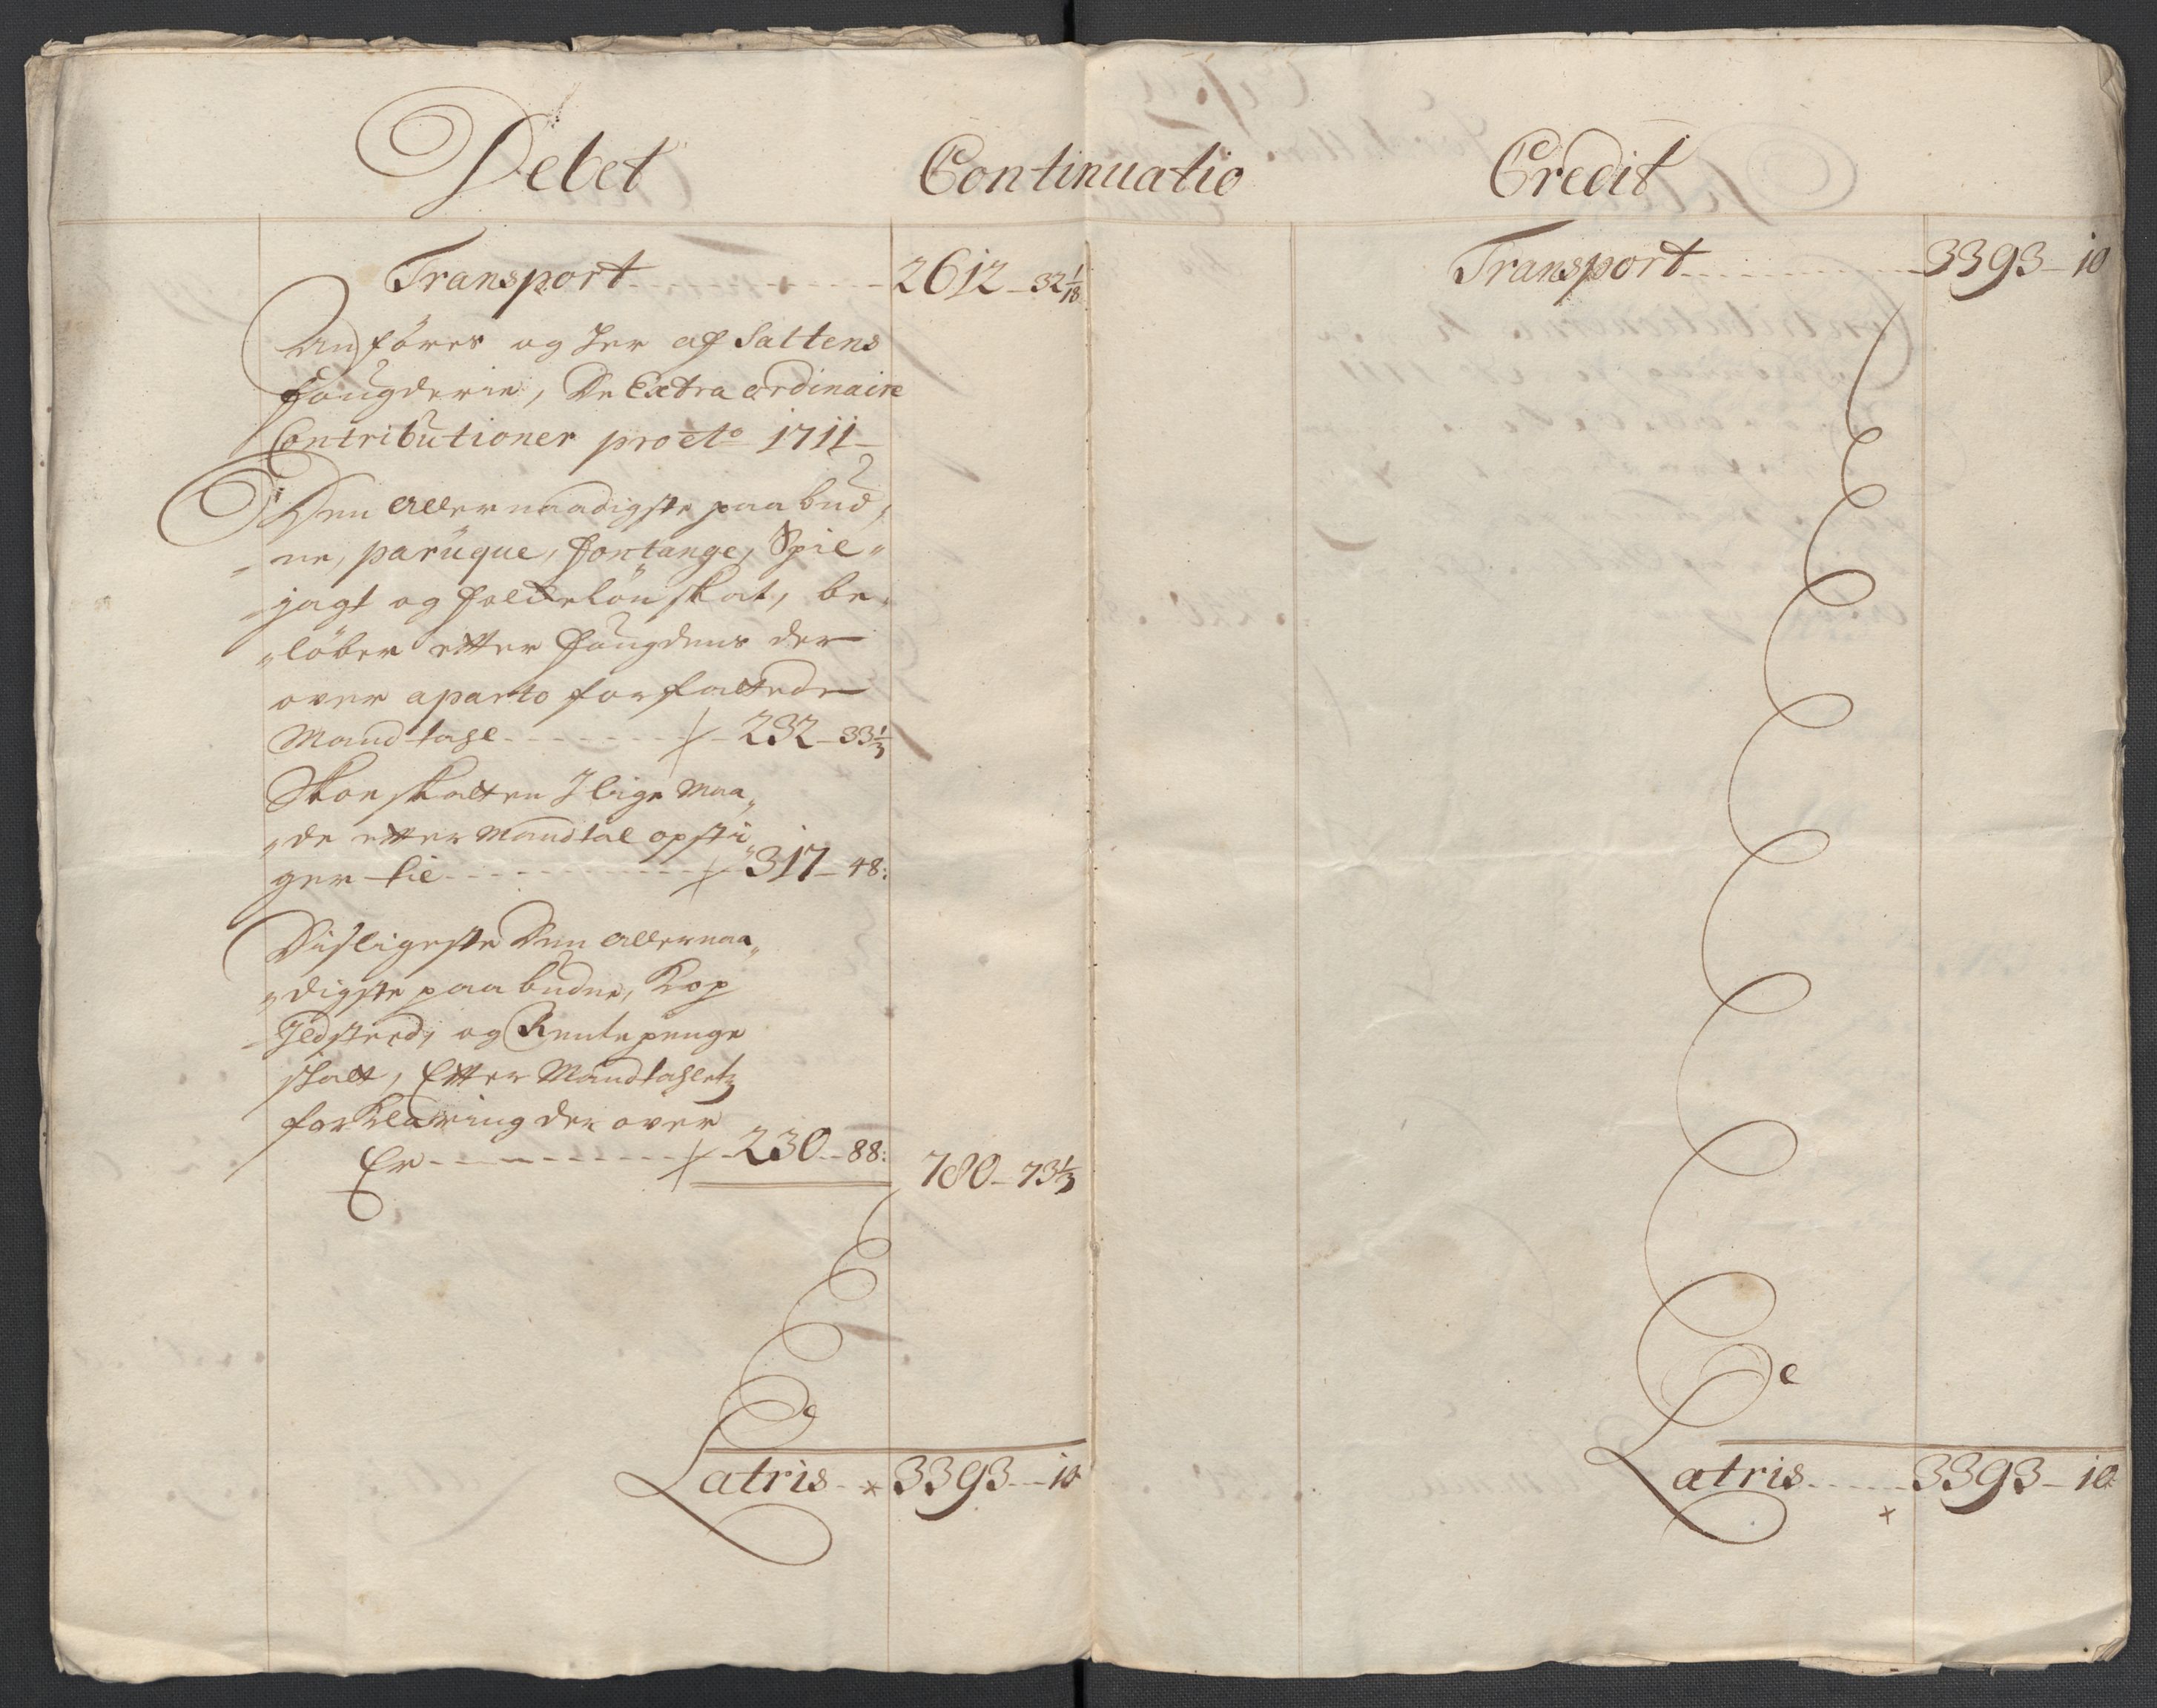 Debet
Continuatio
Credit
Transport 2612 - 32 1/18
Anføres og her af Saltens
fougderie, De Extra ordinaire
Contributioner pro Ao 1711
Den allernaadigste paabud,
„ne, parüque, fontange, Spil„
„jagt og folckelön skat, be„
„löber etter fougdens der
over aparto forfattede
Mandtahl 232 - 33 1/3
Skoe skatten J lige Maa„
„de etter Mandtal opsti„
ger til 317 - 48:
Disligeste Den allernaa„
„digste paabudne, Kop
Jldsted, og Rentepenge
skatt, Etter Mandtahletz
forklaring der over
Er 230 - 88:
780 - 73 1/3
Latris 3393 - 10
Transport 3393 - 10
Latris 3393 - 10